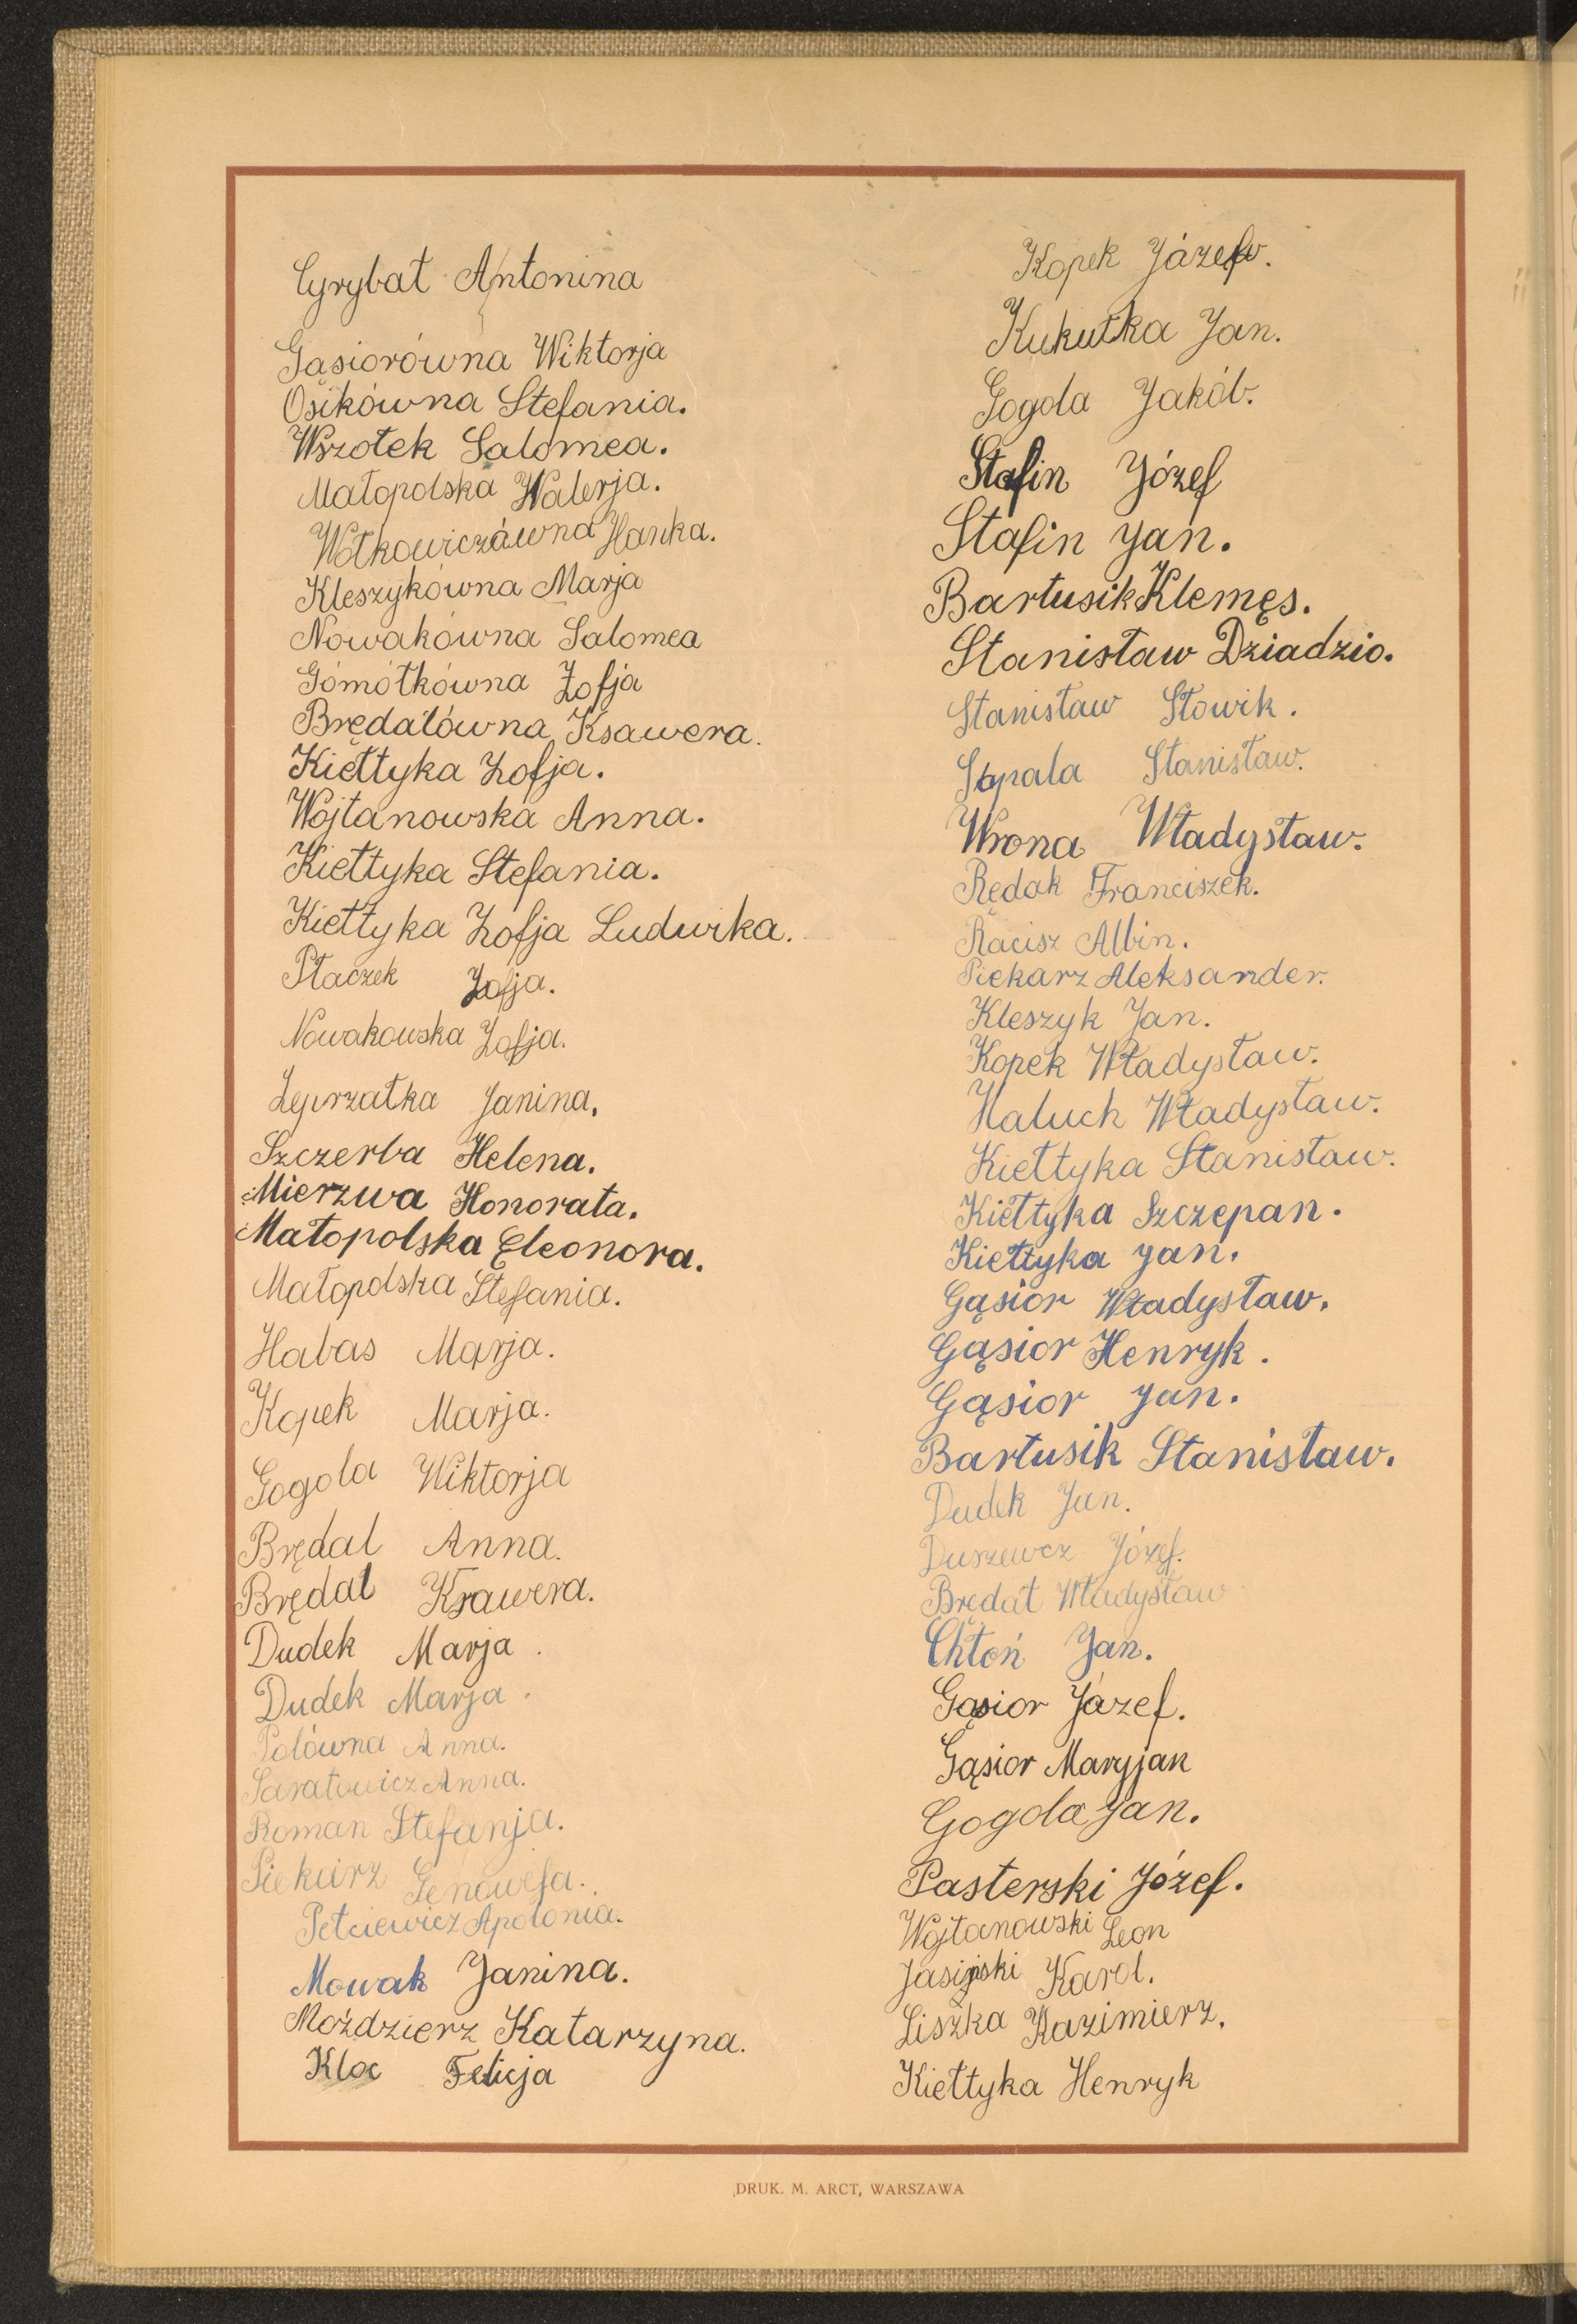 Cyrybał Antonina
Gąsiorówna Wiktorja
Osikówna Stefania.
Wszołek Salomea.
Małopolska Walerja.
Wołkowiczówna Hanka.
Kleszykówna Marja
Nowakówna Salomea
Gómółkówna Zofja
Brędalówna Ksawera.
Kiełtyka Zofja.
Wojtanowska Anna.
Kiełtyka Stefania.
Kiełtyka Zofja Ludwika.
Płaczek Zofja.
Nowakowska Zofja.
Janina.
Szczerba Helena.
Mierzwa Honorata.
Małopolska Eleonora.
Małopolska Stefania.
Habas Marja.
Kopek Marja.
Gogola Wiktorja
Brędal Anna.
Brędal Ksawera.
Dudek Marja.
Dudek Marja.
Polówna Anna.
Saratowicz Anna.
Roman Stefanja.
Piekarz Genowefa.
Apolonia.
Nowak Janina.
Moździerz Katarzyna.
Kloc Felicja
Kopek Józef.
Kukułka Jan.
Gogola Jakób.
Stafin Józef
Stafin Jan.
Bartusik Klemęs.
Stanisław Dziadzio.
Stanisław Słowik.
Stanisław.
Wrona Władysław.
Rędak Franciszek.
Racisz Albin.
Piekarz Aleksander.
Kleszyk Jan.
Kopek Władysław.
Haluch Władysław.
Kiełtyka Stanisław.
Kiełtyka Szczepan.
Kiełtyka Jan.
Gąsior Władysław.
Gąsior Henryk.
Gąsior Jan.
Bartusik Stanisław.
Dudek Jan.
Duszewcz Józef.
Brędał Władysław
Chłoń Jan.
Gąsior Józef.
Gąsior Maryjan
Gogola Jan.
Pasterski Józef.
Wojtanowski Leon
Jasiński Karol.
Liszka Kazimierz.
Kiełtyka Henryk
DRUK. M. ARCT, WARSZAWA